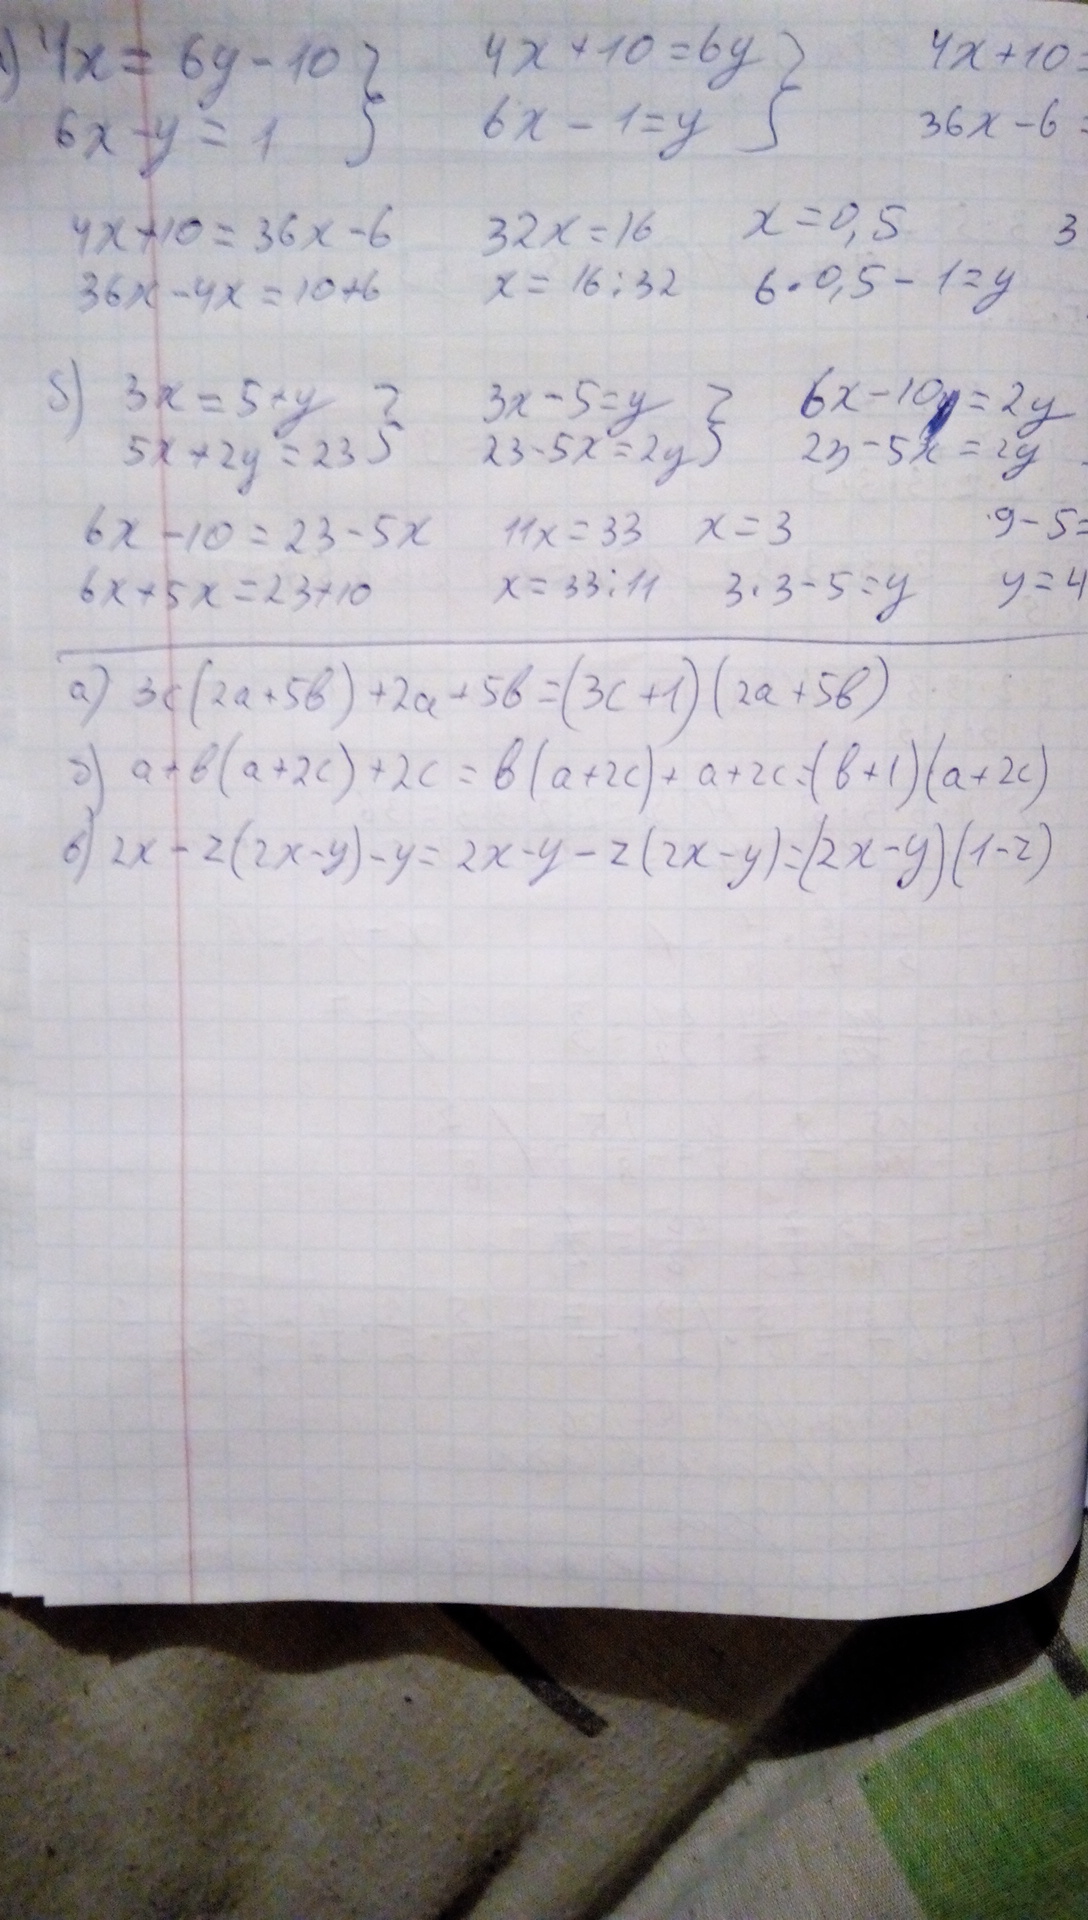 ) 4x = 6y - 10 } 4x + 10 = 6y } 4x + 10 =
6x - y = 1 } 6x - 1 = y } 36x - 6 =
4x + 10 = 36x - 6 32x = 16 x = 0,5 3
36x - 4x = 10 + 6 x = 16 : 32 6 · 0,5 - 1 = y
б) 3x = 5 + y } 3x - 5 = y } 6x - 10 = 2y
5x + 2y = 23 } 23 - 5x = 2y } 23 - 5x = 2y
6x - 10 = 23 - 5x 11x = 33 x = 3 9 - 5 =
6x + 5x = 23 + 10 x = 33 : 11 3 · 3 - 5 = y y = 4
а) 3c(2a + 5b) + 2a + 5b = (3c + 1)(2a + 5b)
б) a + b(a + 2c) + 2c = b(a + 2c) + a + 2c = (b + 1)(a + 2c)
в) 2x - z(2x - y) - y = 2x - y - z(2x - y) = (2x - y)(1 - z)